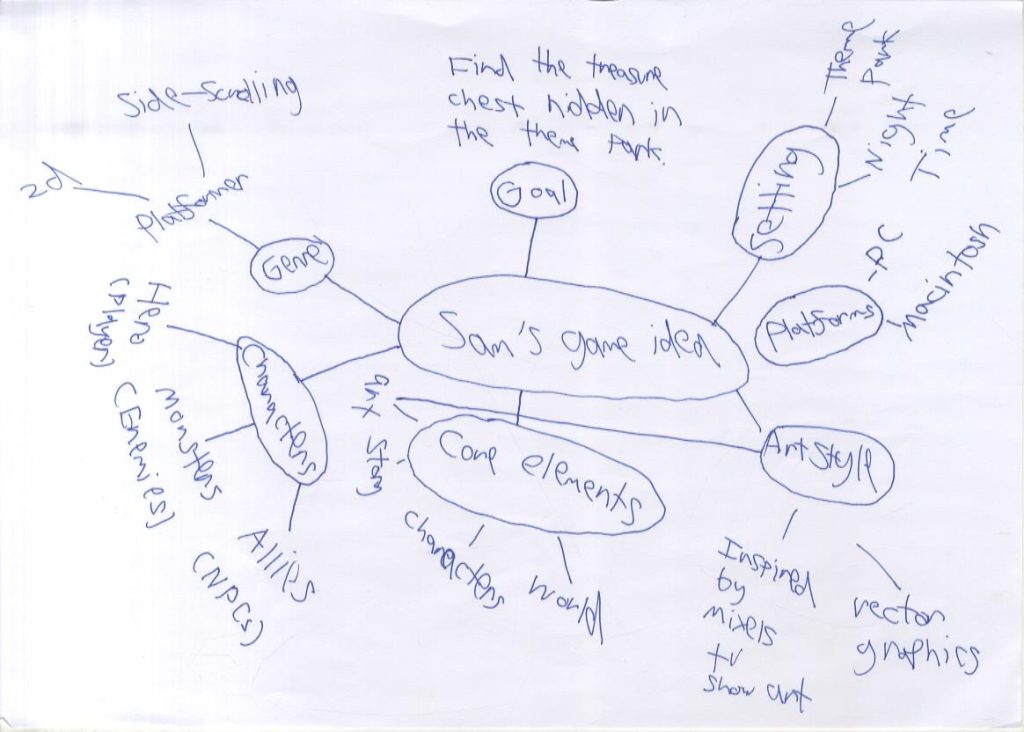 Side-Scrolling
2d
Platformer
Genre
Find the treasure
chest hidden in
the theme Park.
Goal
Theme
Park
Night
Time
Setting
Platforms
-PC
Macintosh
Sam's game idea
Hero
(player)
Monsters
(Enemies)
Characters
Allies
(NPCs)
art
Story
Core elements
characters
world
Art Style
Inspired
by
mixels
tv
show art
vector
graphics